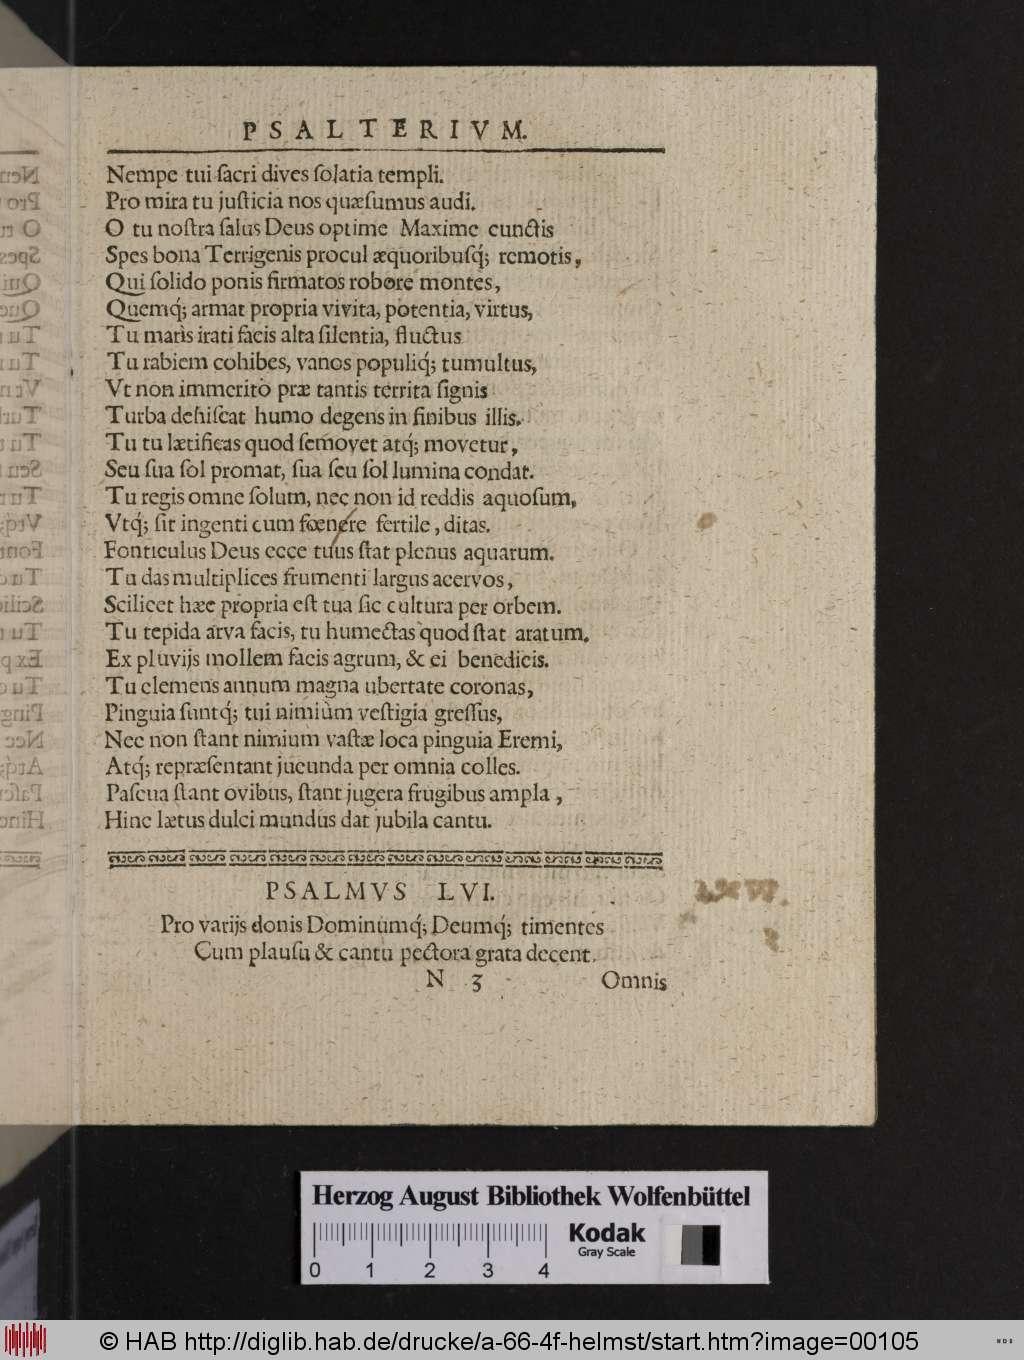 PSALTERIVM.
Nempe tui ſacri dives ſolatia templi.
Pro mira tu juſticia nos quæſumus audi.
O tu noſtra ſalus Deus optime Maxime cunctis
Spes bona Terrigenis procul æquoribuſq́; remotis,
Qui ſolido ponis firmatos robore montes,
Quemq́; armat propria vivita, potentia, virtus,
Tu maris irati facis alta ſilentia, fluctus
Tu rabiem cohibes, vanos populiq́; tumultus,
Vt non immerito præ tantis territa ſignis
Turba dehiſcat humo degens in finibus illis.
Tu tu lætificas quod ſemovet atq́; movetur,
Seu ſua ſol promat, ſua ſeu ſol lumina condat.
Tu regis omne ſolum, nec non id reddis aquoſum,
Vtq́; ſit ingenti cum fœnere fertile, ditas.
Fonticulus Deus ecce tuus ſtat plenus aquarum.
Tu das multiplices frumenti largus acervos,
Scilicet hæc propria eſt tua ſic cultura per orbem.
Tu tepida arva facis, tu humectas quod ſtat aratum.
Ex pluvijs mollem facis agrum, & ei benedicis.
Tu clemens annum magna ubertate coronas,
Pinguia ſuntq́; tui nimiùm veſtigia greſſus,
Nec non ſtant nimium vaſtæ loca pinguia Eremi,
Atq́; repræſentant jucunda per omnia colles.
Paſcua ſtant ovibus, ſtant jugera frugibus ampla,
Hinc lætus dulci mundus dat jubila cantu.
PSALMVS LVI.
Pro varijs donis Dominumq́; Deumq́; timentes
Cum plauſu & cantu pectora grata decent.
N 3 Omnis
Herzog August Bibliothek Wolfenbüttel
Kodak
Gray Scale
0 1 2 3 4
© HAB http://diglib.hab.de/drucke/a-66-4f-helmst/start.htm?image=00105